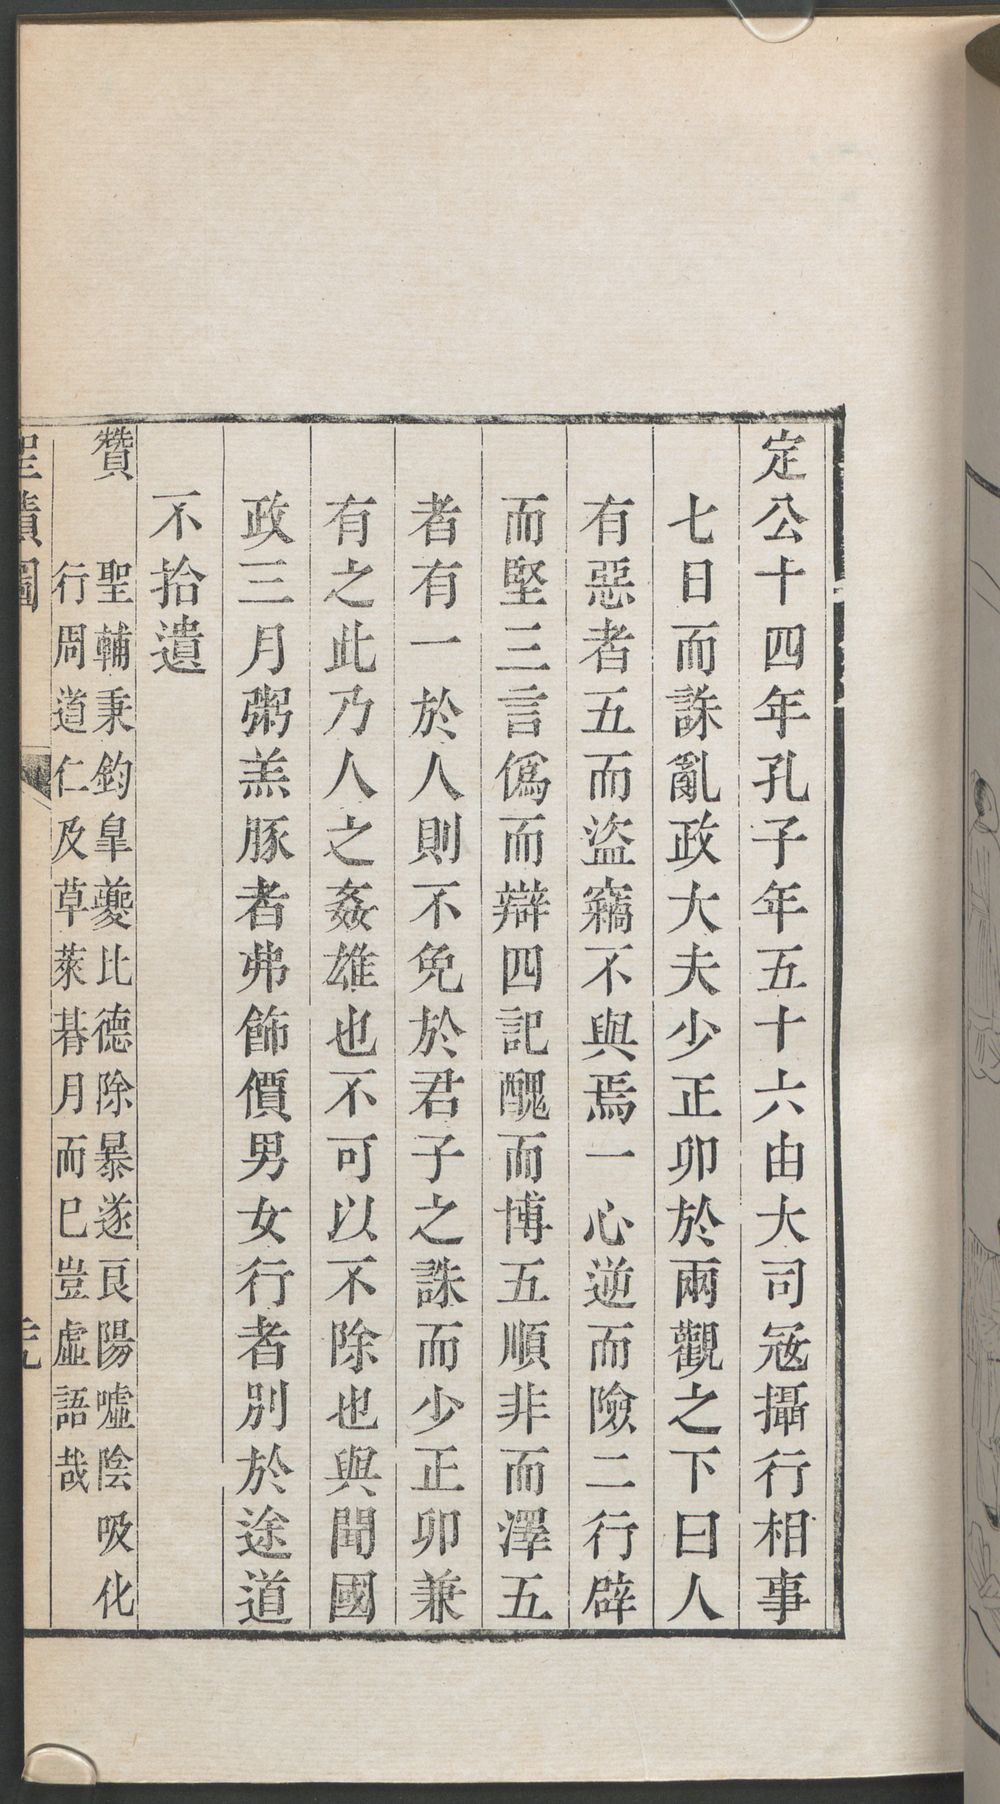 定公十四年孔子年五十六由大司寇攝行相事
七日而誅亂政大夫少正卯於兩觀之下曰人
有惡者五而盜竊不與焉一心逆而險二行辟
而堅三言僞而辯四記醜而博五順非而澤五
者有一於人則不免於君子之誅而少正卯兼
有之此乃人之姦雄也不可以不除也與聞國
政三月粥羔豚者弗飾價男女行者別於途道
不拾遺
贊
聖輔秉鈞臯夔比德除暴遂良陽噓陰吸化
行周道仁及草萊朞月而已豈虛語哉
聖蹟圖